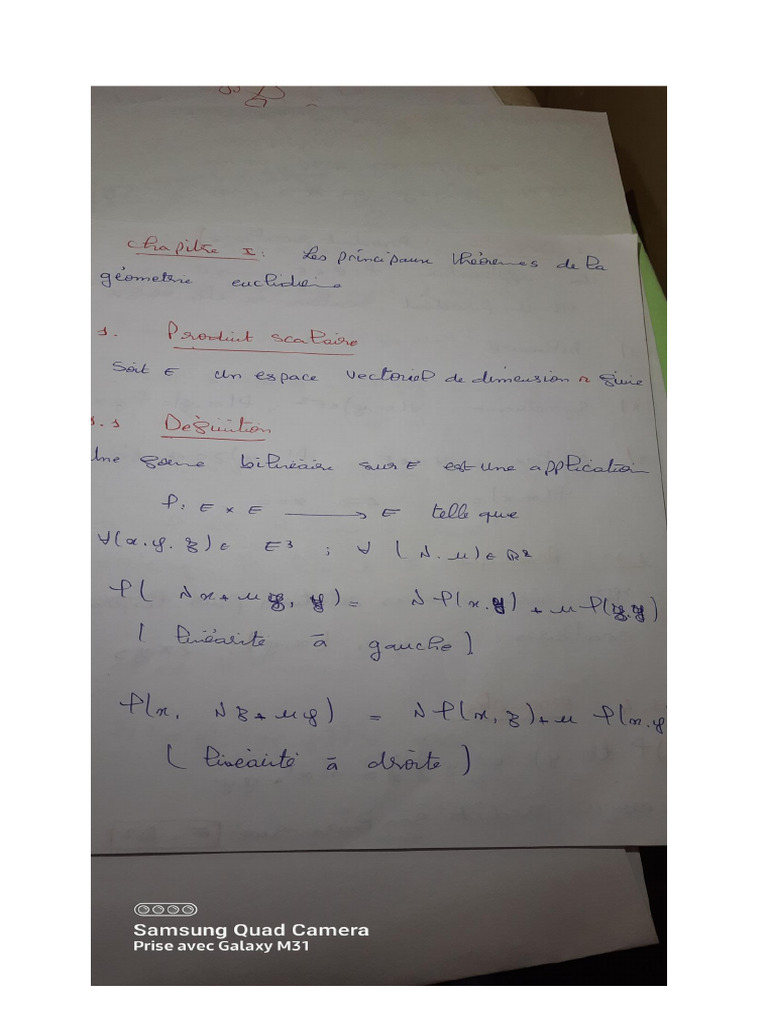 Chapitre I : Les principaux théorèmes de la
géometrie euclidienne
1. Produit scalaire
Soit E un espace vectoriel de dimension n finie
1.1 Définition
Une forme bilinéaire sur E est une application
f: E × E → E telle que
∀(x.y.z)∈ E³ ; ∀ (λ.μ)∈ℝ²
f( λx+μz, y) = λf(x.y)+μf(z.y)
( linéarité à gauche).
f(x, λz+μy) = λf(x,z)+μ f(x.y
( linéarité à droite)
Samsung Quad Camera
Prise avec Galaxy M31